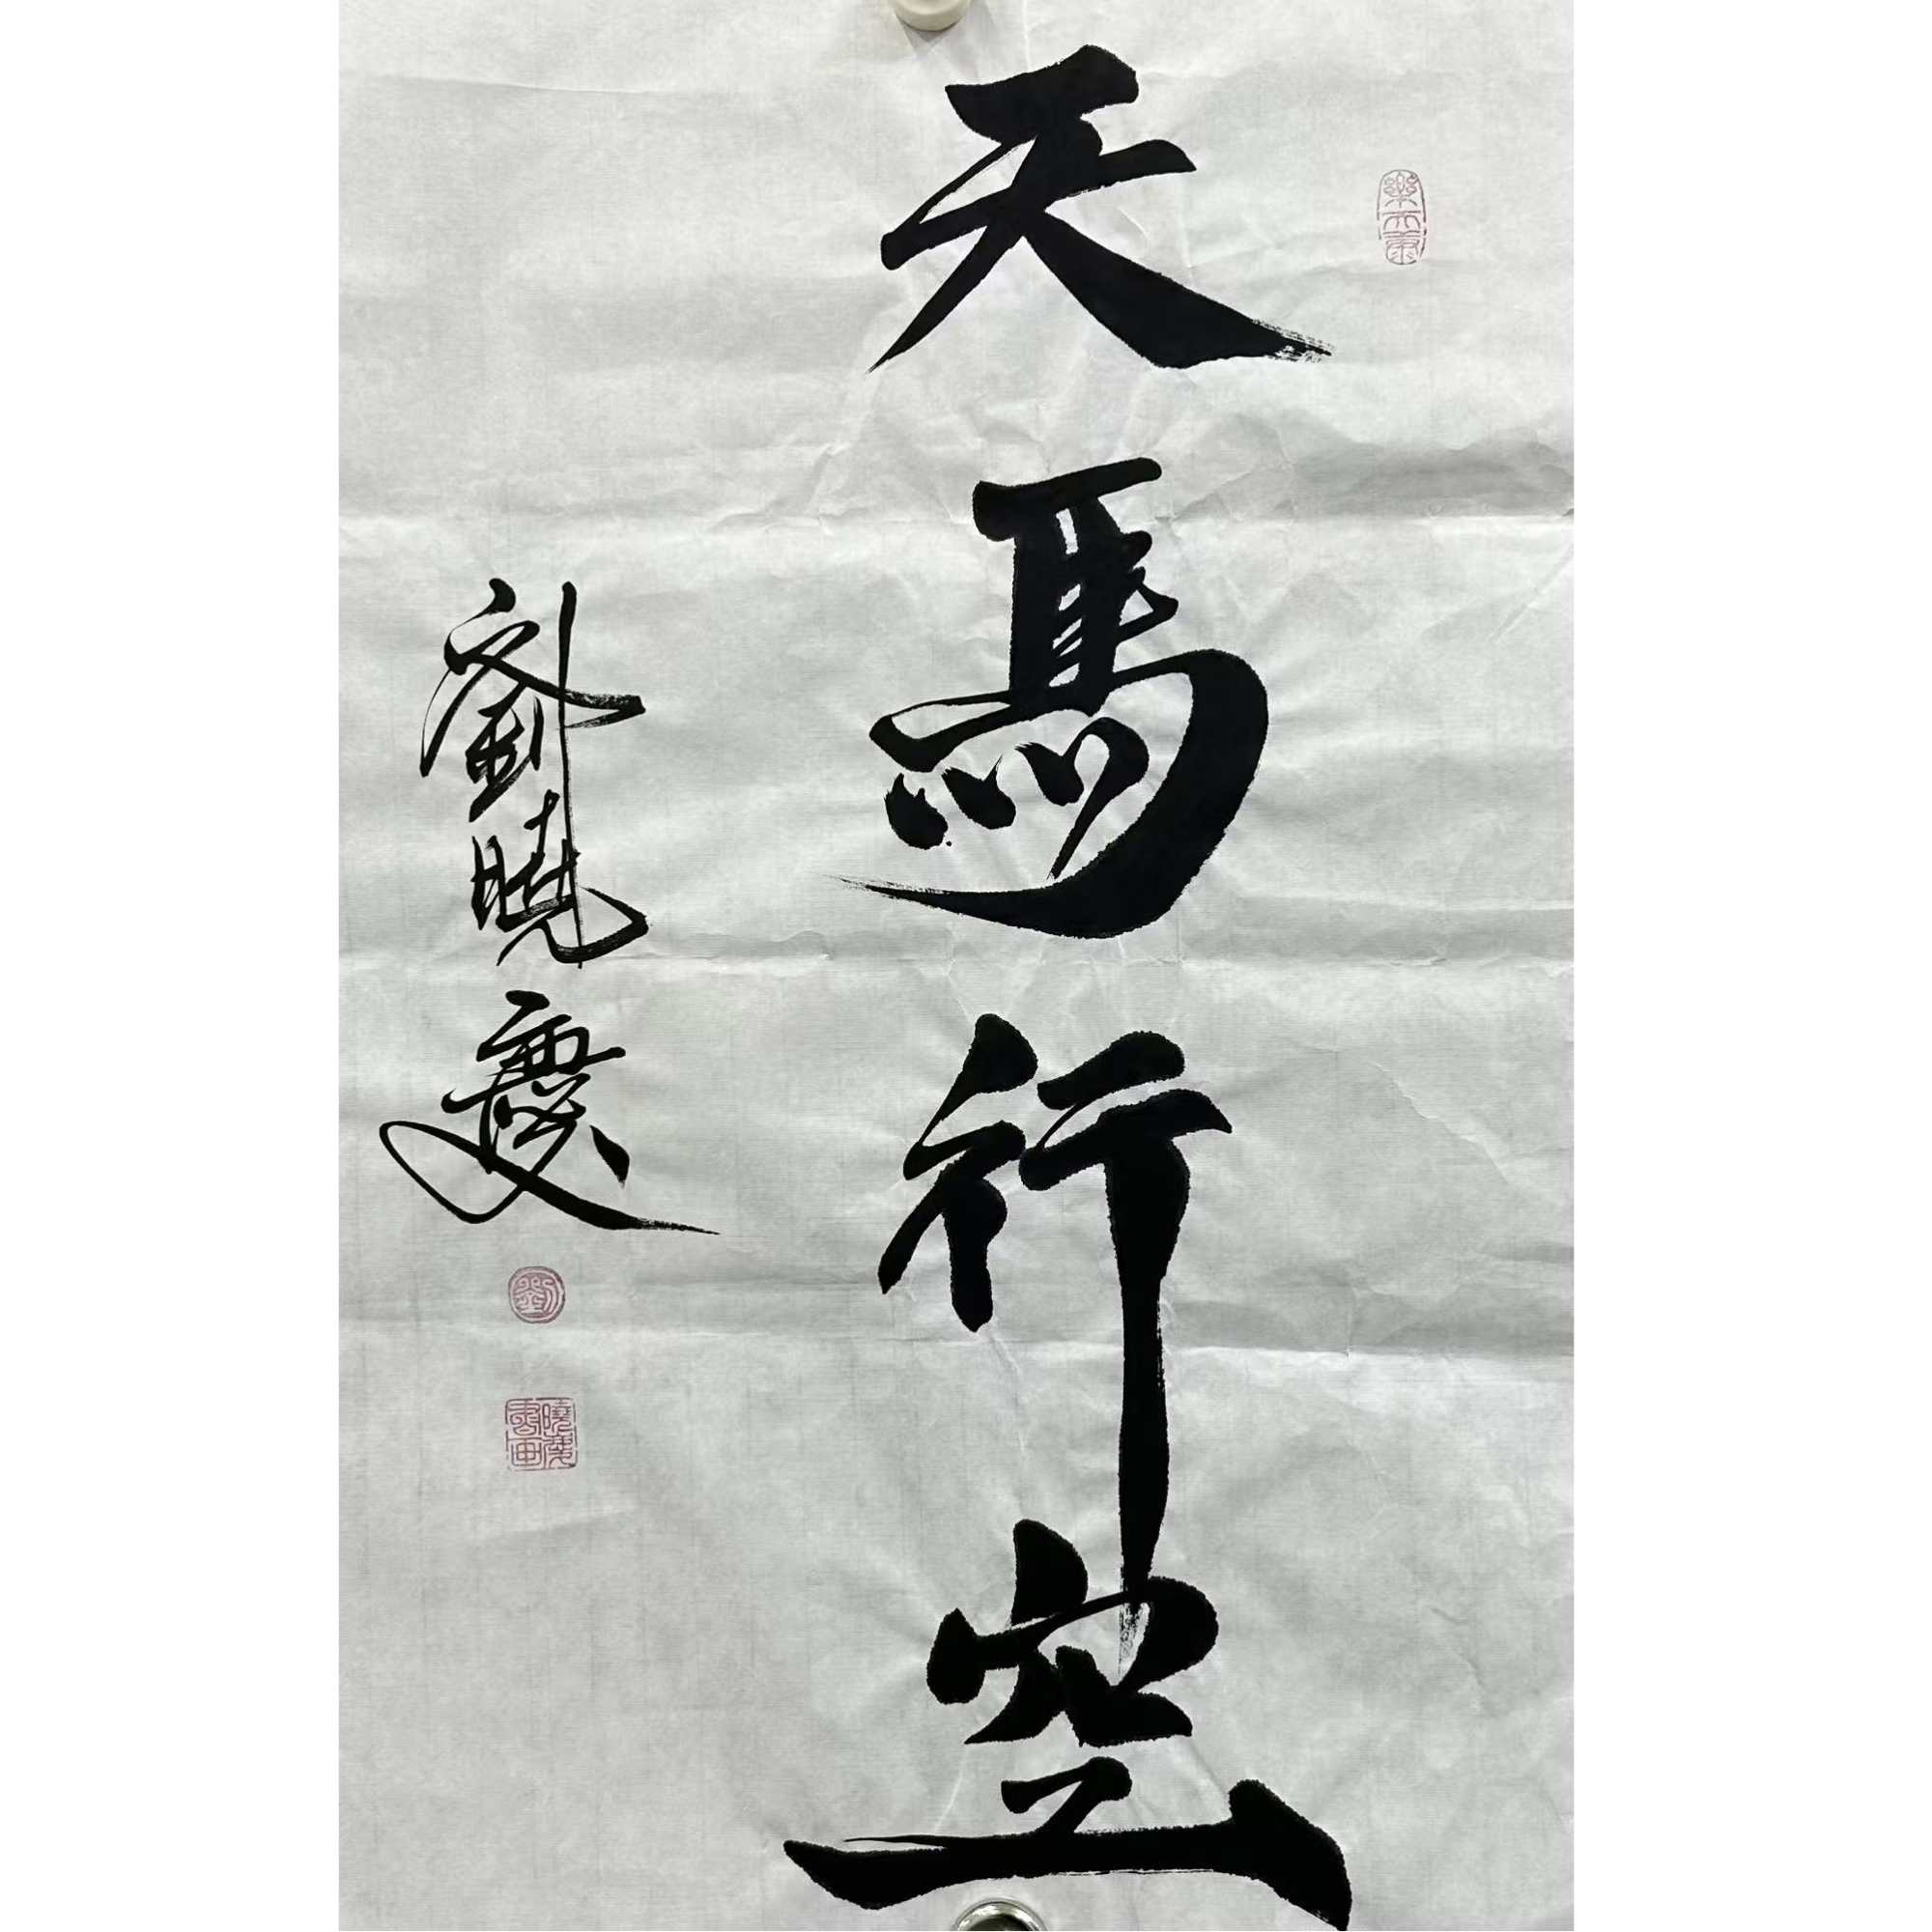 天馬行空
劉曉慶
劉
曉慶書画